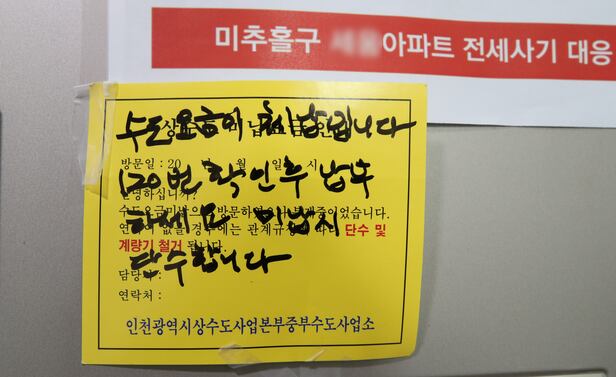 미추홀구 아파트 전세사기 대응
수도요금이 체납됩니다
방문일 : 20 년 월 일 시
120번 확인후 납부
안녕하십니까?
수도요금 방문하였으나 부재중이었습니다.
하세요 미납시
경우에는 관계규정에 단수 및
계량기 철거 됩니다
단수합니다
담당자 :
연락처 :
인천광역시상수도사업본부중부수도사업소